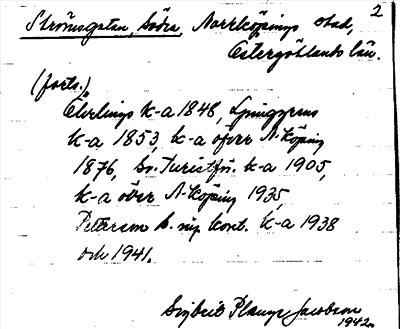 2
Strömsgatan, Södra, Norrköpings stad,
Östergötlands län.
(forts.)
Ekerlings k-a 1848, Ljunggrens
k-a 1853, k-a öfver N-köping
1876, Sv. Turistför. k-a 1905,
k-a över N-köping 1935,
Petterson b. ny kont. k-a 1938
och 1941.
Sigbrit Plange Jacobson
1942.